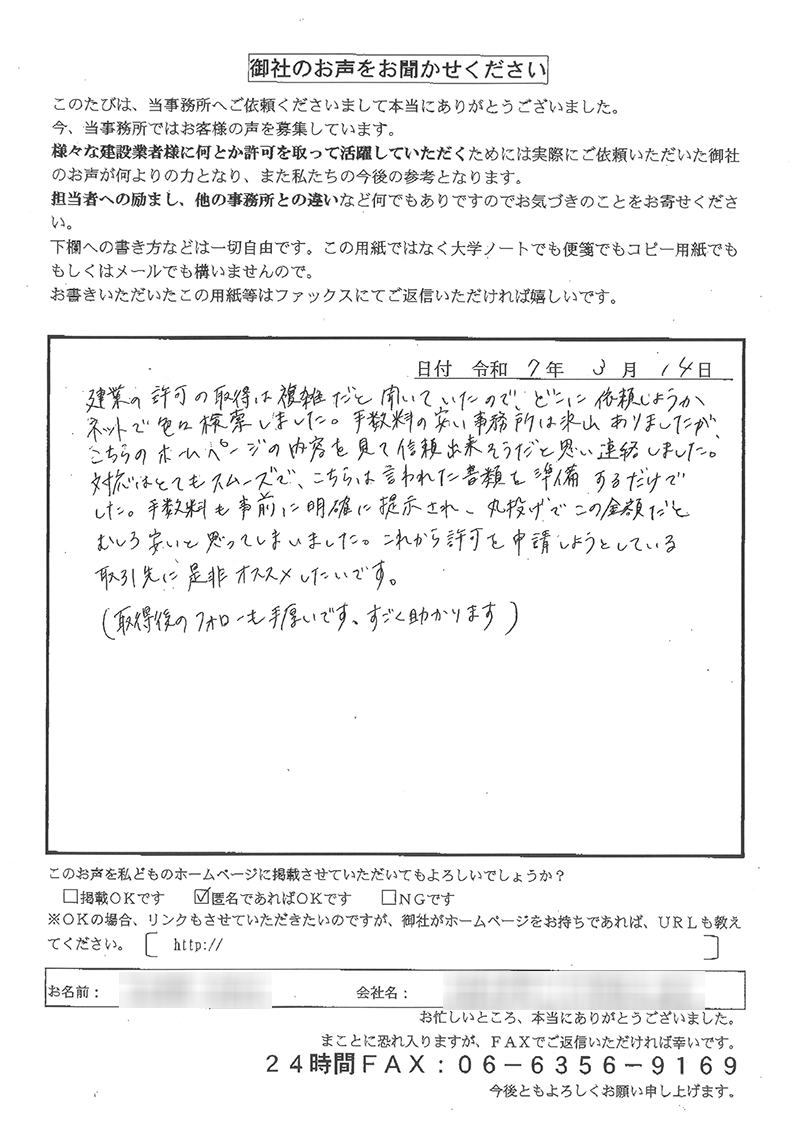 御社のお声をお聞かせください
このたびは、当事務所へご依頼くださいまして本当にありがとうございました。
今、当事務所ではお客様の声を募集しています。
様々な建設業者様に何とか許可を取って活躍していただくためには実際にご依頼いただいた御社
のお声が何よりの力となり、また私たちの今後の参考となります。
担当者への励まし、他の事務所との違いなど何でもありですのでお気づきのことをお寄せくださ
い。
下欄への書き方などは一切自由です。この用紙ではなく大学ノートでも便箋でもコピー用紙でも
もしくはメールでも構いませんので。
お書きいただいたこの用紙等はファックスにてご返信いただければ嬉しいです。
日付 令和 7年 3月 14日
建業の許可の取得は複雑だと聞いていたので、どこに依頼しようか
ネットで色々検索しました。手数料の安い事務所は沢山ありましたが
こちらのホームページの内容を見て信頼出来そうだと思い連絡しました。
対応はとてもスムーズで、こちらは言われた書類を準備するだけで
した。手数料も事前に明確に提示され、丸投げでこの金額だと
むしろ安いと思ってしまいました。これから許可を申請しようとしている
取引先に是非オススメしたいです。
(取得後のフォローも手厚いです、すごく助かります)
このお声を私どものホームページに掲載させていただいてもよろしいでしょうか？
□掲載ＯＫです ☑匿名であればＯＫです □ＮＧです
※ＯＫの場合、リンクもさせていただきたいのですが、御社がホームページをお持ちであれば、ＵＲＬも教え
てください。［ http:// ］
お名前： 会社名：
お忙しいところ、本当にありがとうございました。
まことに恐れ入りますが、ＦＡＸでご返信いただければ幸いです。
２４時間ＦＡＸ：０６－６３５６－９１６９
今後ともよろしくお願い申し上げます。